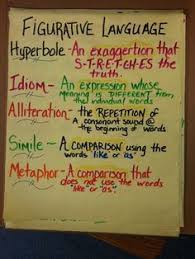 FIGURATIVE LANGUAGE
Hyperbole - An exaggertion that
S-T-R-E-T-C-H-E-S
the truth.
Idiom - An expression whose
meaning is DIFFERENT from
the individual words
Alliteration - the REPETITION OF
A consonant sound @
the beginning of words
Simile - A COMPARISON using the
words "like or as"
Metaphor - A comparison that
does not use the words
"like or "as".